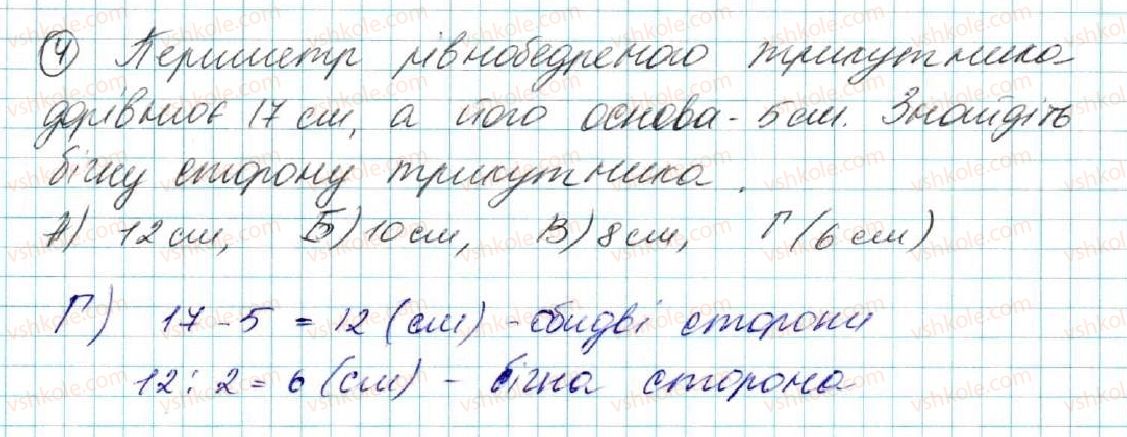 4 Периметр рівнобедреного трикутника
дорівнює 17 см, а його основа - 5 см. Знайдіть
бічну сторону трикутника.
А) 12 см, Б) 10 см, В) 8 см, Г (6 см)
Г) 17 - 5 = 12 (см) - обидві сторони
12 : 2 = 6 (см) - бічна сторона
vshkole.com